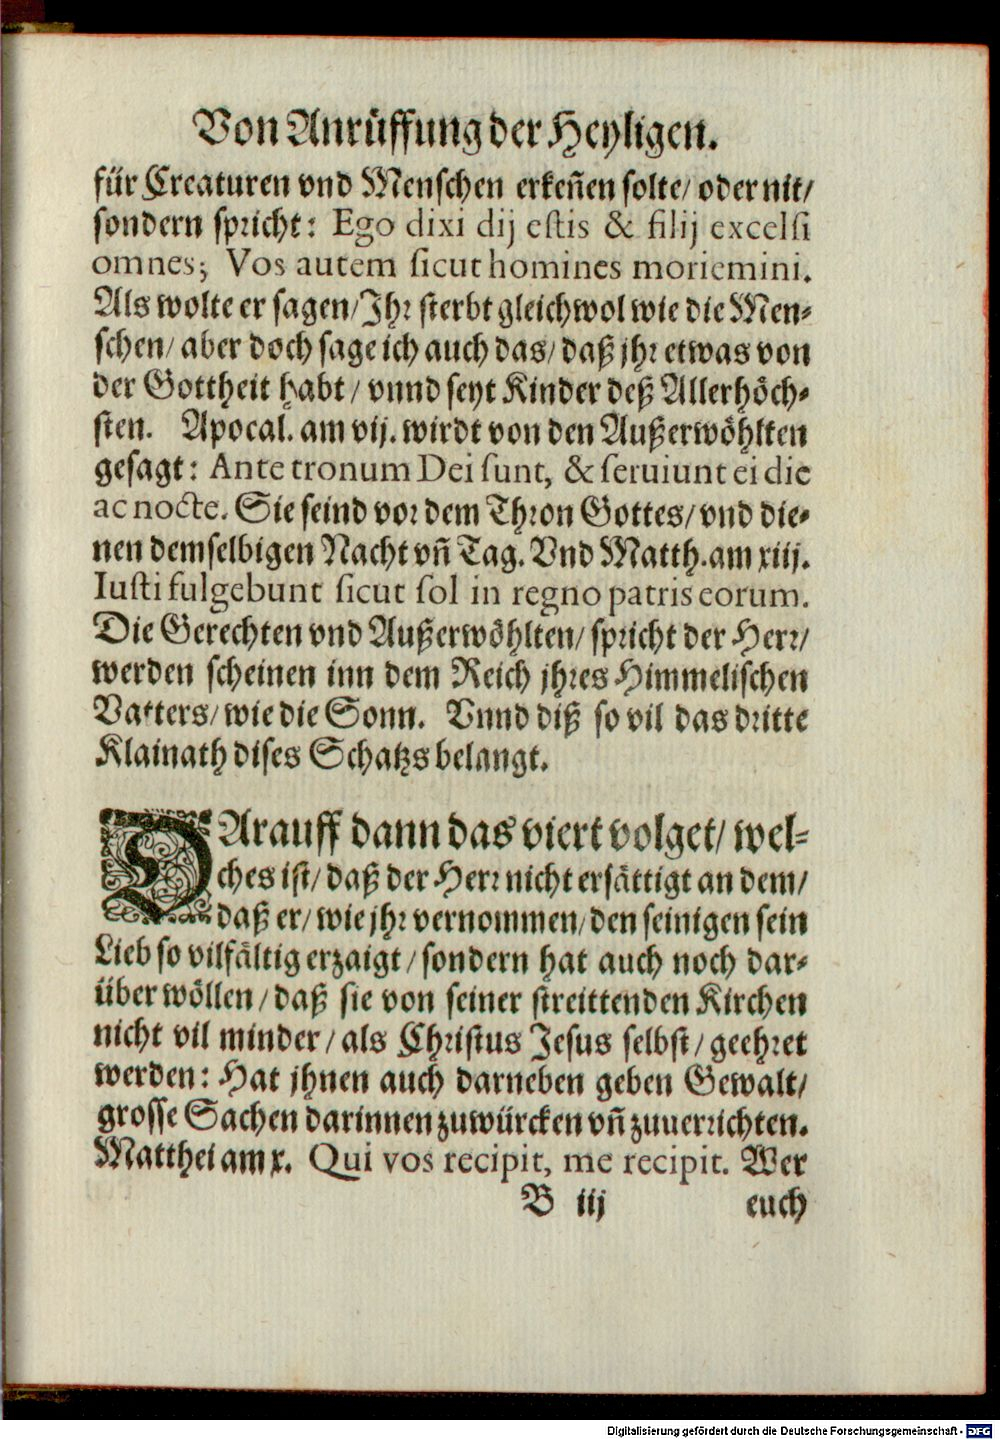 Von Anrüffung der Heyligen.
für Creaturen vnd Menschen erkeñen solte/ oder nit/
sondern spricht: Ego dixi dij estis & filij excelsi
omnes; Vos autem sicut homines moriemini.
Als wolte er sagen/ Jhr sterbt gleichwol wie die Men⸗
schen/ aber doch sage ich auch das/ daß jhr etwas von
der Gottheit habt/ vnnd seyt Kinder deß Allerhöch⸗
sten. Apocal. am vij. wirdt von den Außerwöhlten
gesagt: Ante tronum Dei sunt, & seruiunt ei die
ac nocte. Sie seind vor dem Thron Gottes/ vnd die⸗
nen demselbigen Nacht vñ Tag. Vnd Matth. am xiij.
Iusti fulgebunt sicut sol in regno patris eorum.
Die Gerechten vnd Außerwöhlten/ spricht der Herr/
werden scheinen inn dem Reich jhres Himmelischen
Vatters/ wie die Sonn. Vnnd diß so vil das dritte
Klainath dises Schatzs belangt.
DArauff dann das viert volget/ wel⸗
ches ist/ daß der Herr nicht ersättigt an dem/
daß er/ wie jhr vernommen/ den seinigen sein
Lieb so vilfältig erzaigt/ sondern hat auch noch dar⸗
über wöllen/ daß sie von seiner streittenden Kirchen
nicht vil minder/ als Christus Jesus selbst/ geehret
werden: Hat jhnen auch darneben geben Gewalt/
grosse Sachen darinnen zuwürcken vñ zuuerrichten.
Matthei am x. Qui vos recipit, me recipit. Wer
B iij euch
Digitalisierung gefördert durch die Deutsche Forschungsgemeinschaft - DFG